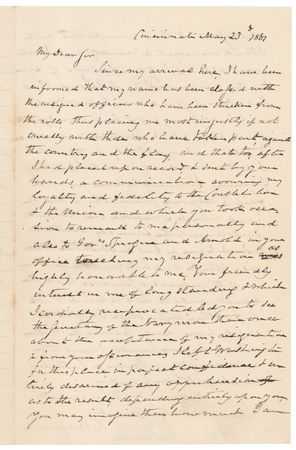 Cincinnati May 23d 1861
My Dear Sir
Since my arrival here, I have been
informed that my name has been classed with
the resigned officers who have been stricken from
the rolls thus placing me most unjustly if not
cruelly with those who have taken part against
the country and the flag, and that too after
I had placed upon record & sent to your
hands, a communication avowing my
loyalty and fidelity to the Constitution
& the Union and which you took occa
sion to remark to me personally and
also to Govr Sprague and Arnold in your
office my resignation as
highly honorable to me. Your friendly
interest in me of long standing & which
I cordially reciprocated led you to see
the Secretary of the Navy more than once
about the acceptance of my resignation
& from your assurances I left Washington
for this place in perfect confidence & en
tirely disarmed of any apprehension
as to the result, depending entirely upon you
You may imagine then how much I am